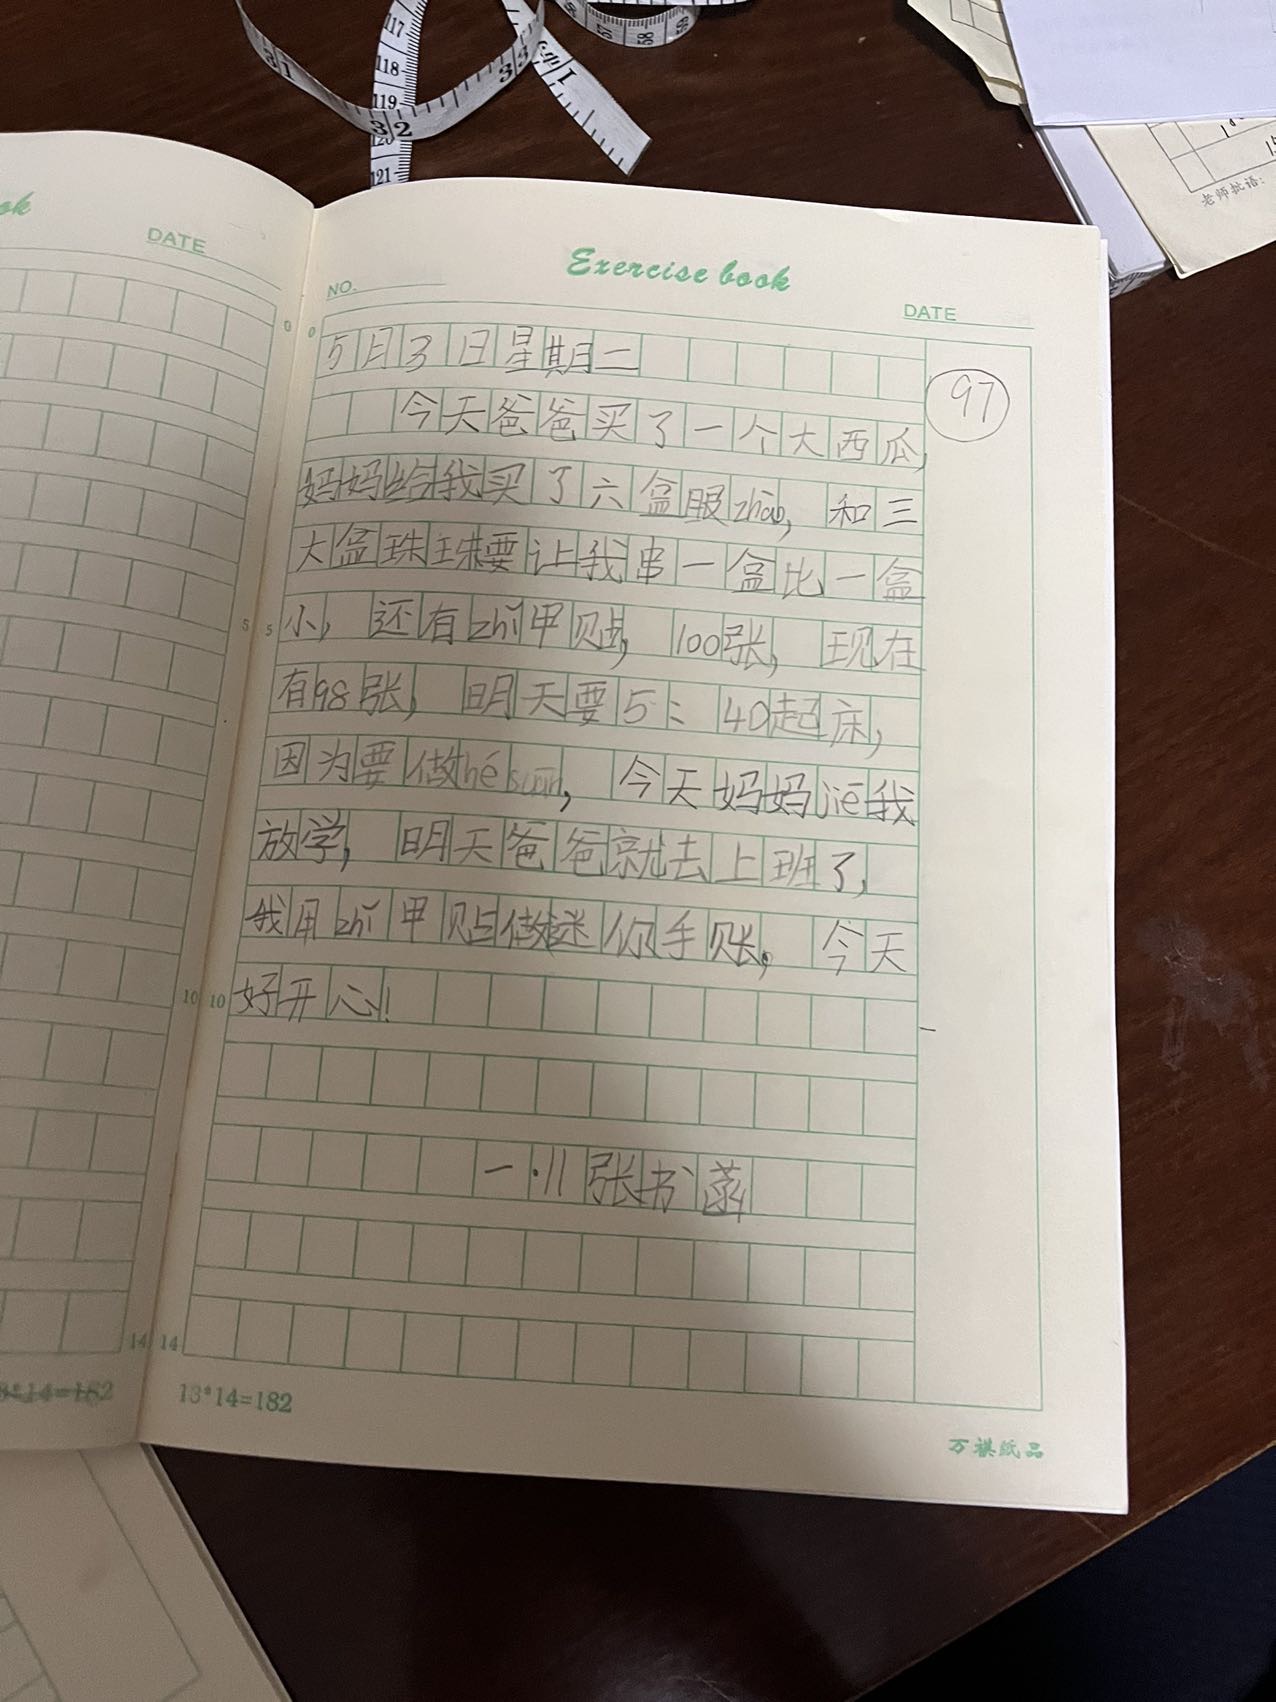 117
118
31
119
32
33
120
121
57 58 59
老师批语:
ok
DATE
Exercise book
NO.
DATE
0 0
5月3日星期二
97
今天爸爸买了一个大西瓜,
妈妈给我买了六盒服zhāo, 和三
大盒珠珠要让我串一盒比一盒
5 5
小, 还有zhǐ甲贴, 100张, 现在
有98张, 明天要5:40起床,
因为要做hé suān, 今天妈妈jiē我
放学, 明天爸爸就去上班了,
我用zhǐ甲贴做迷你手账。今天
10 10
好开心!
一·11 张书菡
14 14
13*14=182
13*14=182
万祺纸品